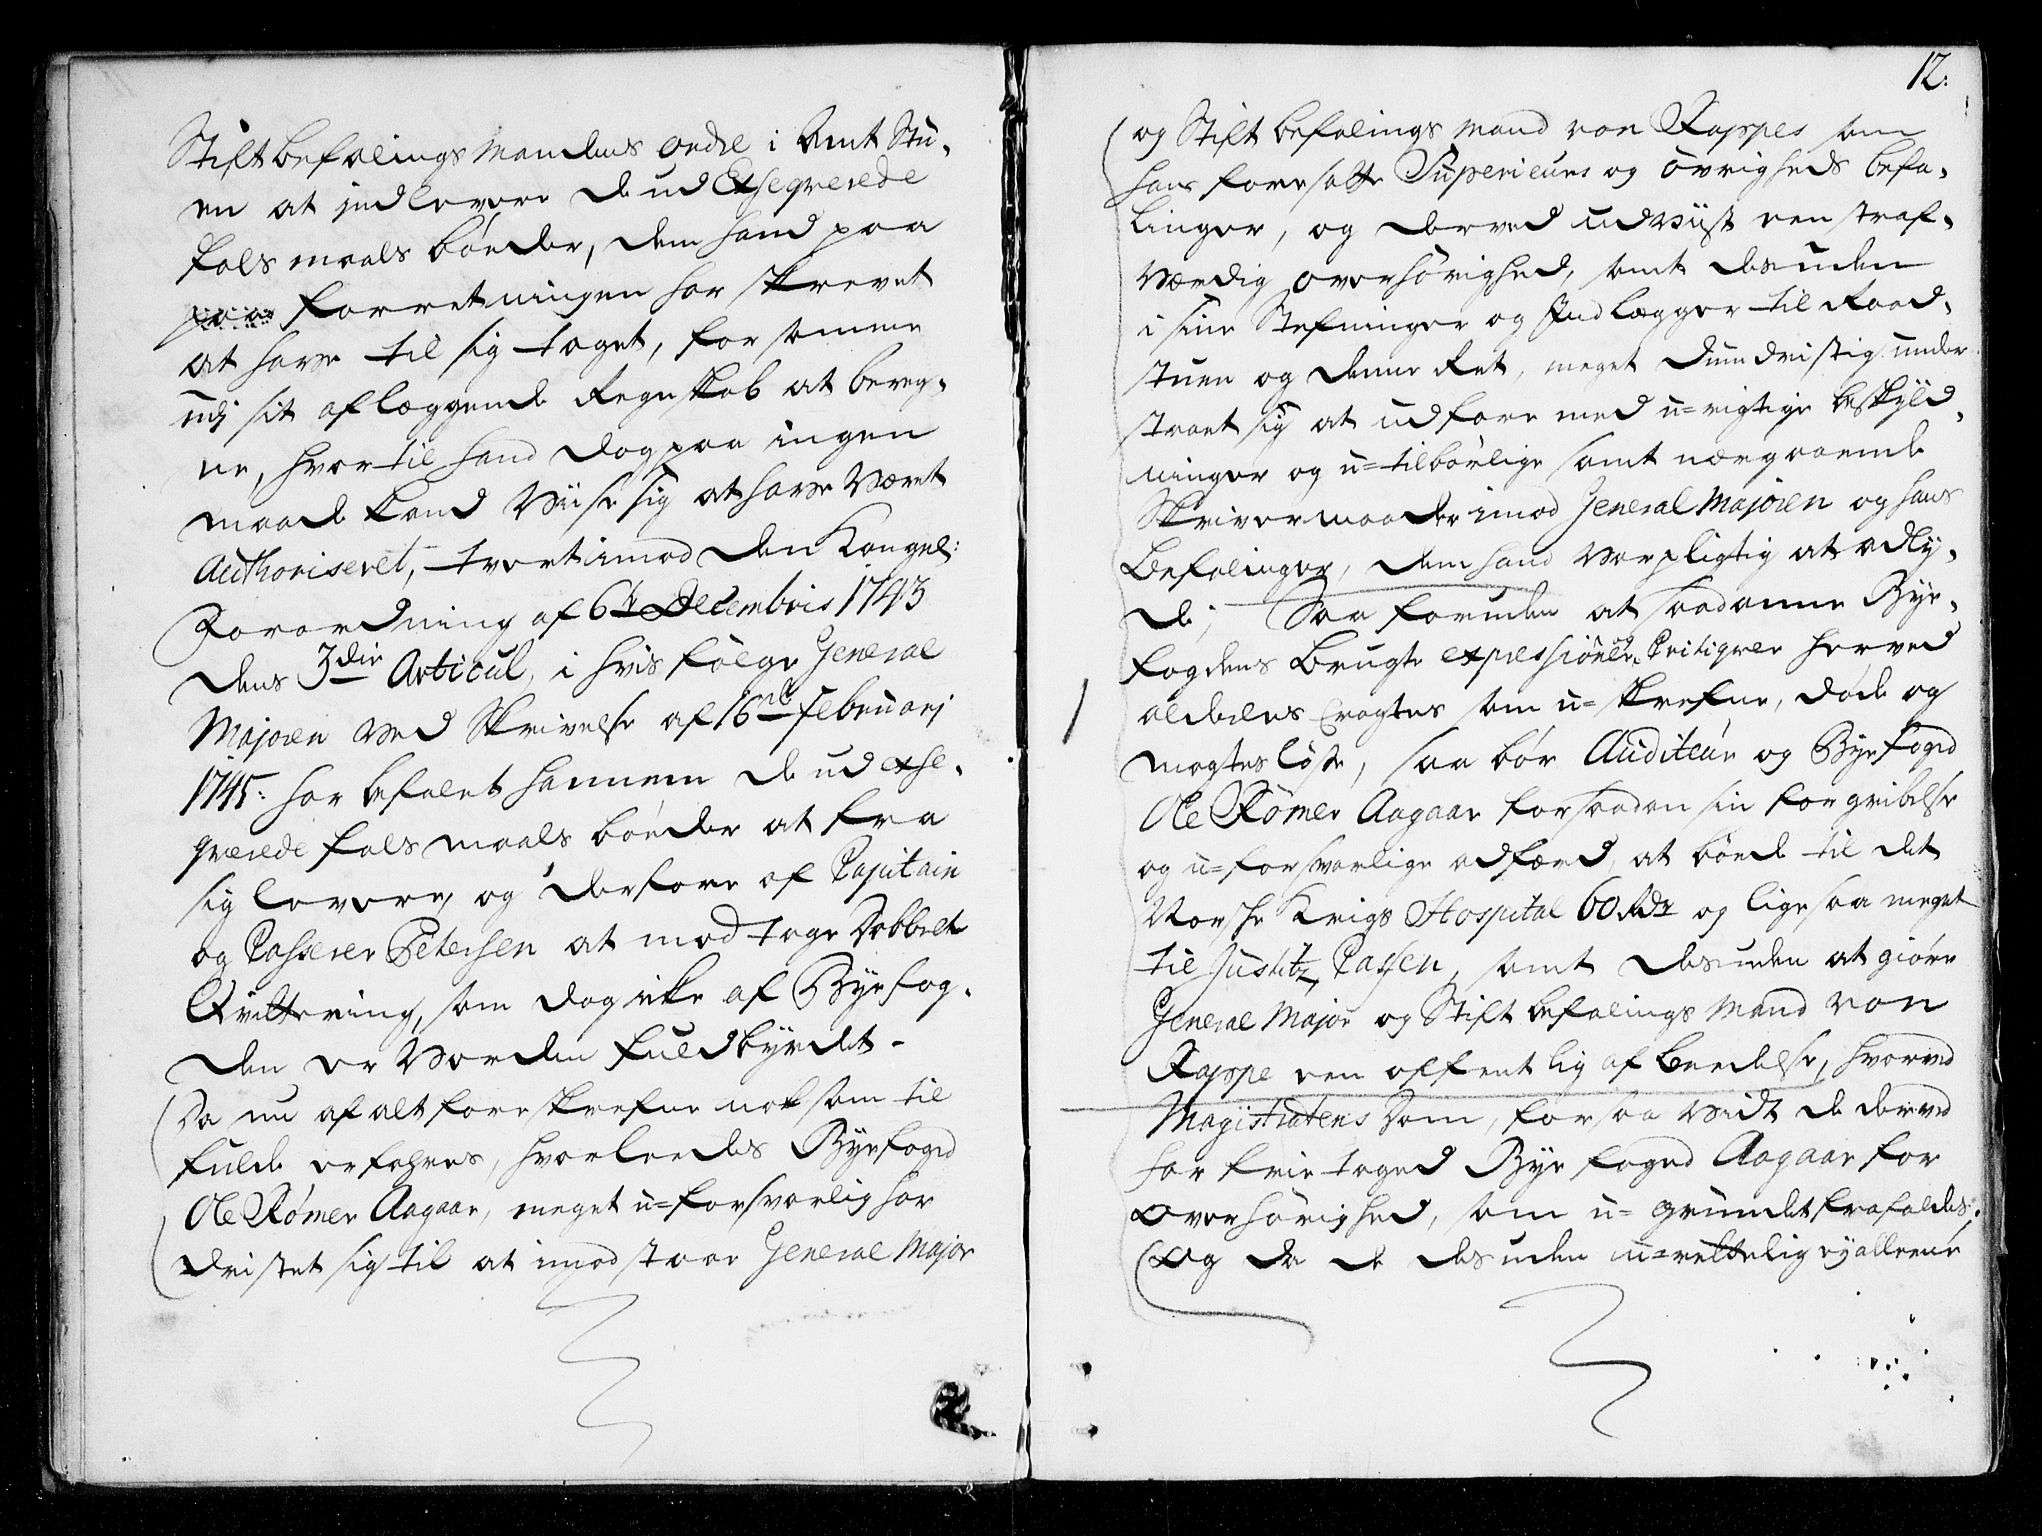 Stiftbefalings Mandens ordre i Amt Stu-
en at indlevere de ud Exseqverede
fals maals bøeder, dem hand paa
paa forretningen har skrevet
at have til sig taget, for samme
udj sit aflæggende Regnskab at bereg-
ne, hvortil hand dog paa ingen
maade kand Viise sig at have Været
Authoriseret, tvertimod den Kongel:
Forordning af 6te Decembris 1743
dens 3die Articul, i hvis følge General
Majoren ved Skrivelse af 16de Februarj
1745: har befalet hannem de ud exse-
qverede fals maals bøeder at fra
sig levere, og derfore af Capitain
og Casserer Petersen at modtage Dobbelt
Qvittering, som dog icke af Byefog-
den er Vorden fuldbyrdet -
Da nu af alt foreskrefne noksom til
fulde erfahres, hvorleedes Byefoged
Ole Rømer Aagaar, meget u=forsvarlig har
dristet sig til at imodstaae General Major
12:
og Stiftbefalings Mand von Rappes som
hans foresatte Superieurs og øvrigheds befa-
linger, og derved udviist een straf-
værdig overhørighed, samt desuden
i sine Stefninger og Indlægger til Raad-
stuen og denne Ret, meget dumdristig under-
staaet sig at udfare med u=rigtige beskyld-
ninger og u=tilbørlige samt nærgaaende
Skrivermaader imod General Majoren og hans
Befalinger, dem hand var pligtig at adly-
de; Saa foruden at saadanne Bye-
fogdens Brugte expressioner og Critiqver herved
aldeeles eragtes som u=skrefne, døde og
magtesløse, saa bør Auditeur og Byefoged
Ole Rømer Aagaar for saadan sin forgribelse
og u=forsvarlige adfærd, at bøede til det
Norske Krigs Hospital 60 Rdr og ligesaa meget
til Justitz Cassen, samt desuden at giøre
General Major og Stiftbefalings Mand von
Rappe een offentlig afbeedelse, hvorved
Magistratens Dom, forsaavidt de derved
har frietaged Byefoged Aagaar for
Overhørighed, som u=grundet frafaldes:
Og da de desuden u=rettelig ey alleene